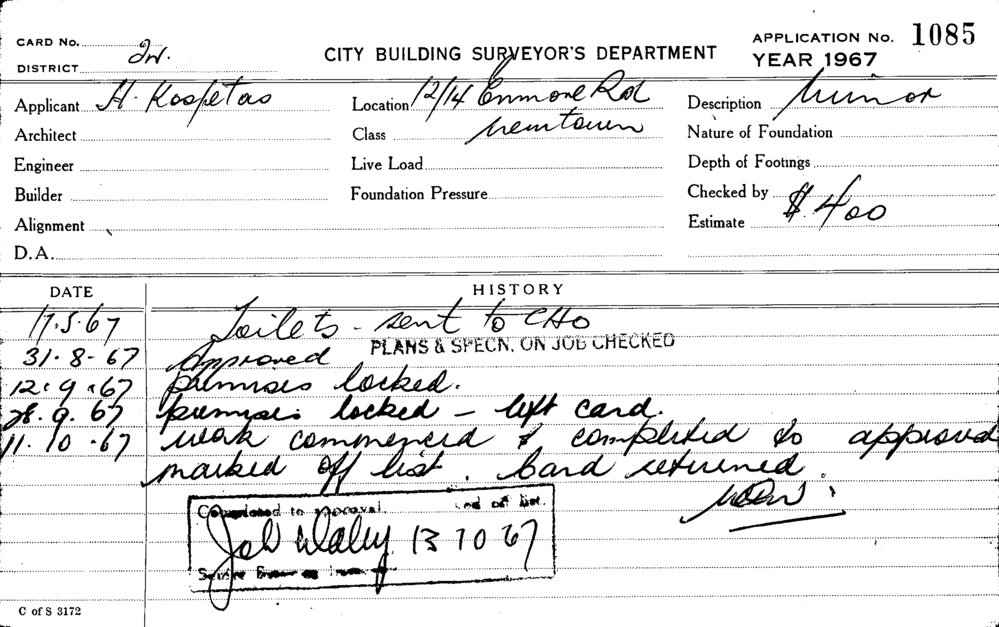 CARD No.
DISTRICT
CITY BUILDING SURVEYOR'S DEPARTMENT
APPLICATION No. 1085
YEAR 1967
Applicant H. Kospetas
Location 12/14 Enmore Rd
Description Minor
Architect
Class Newtown
Nature of Foundation
Engineer
Live Load
Depth of Footings
Builder
Foundation Pressure
Checked by
Alignment
Estimate $400
D.A.
DATE HISTORY
17.5.67 Toilets - sent to CHO
31.8.67 Approved PLANS & SPECN. ON JOB CHECKED
12.9.67 premises locked.
28.9.67 premises locked - left card.
11.10.67 work commenced & completed to approved
marked off list. Card returned.
Completed to approval. of list.
13 10 67
C of S 3172